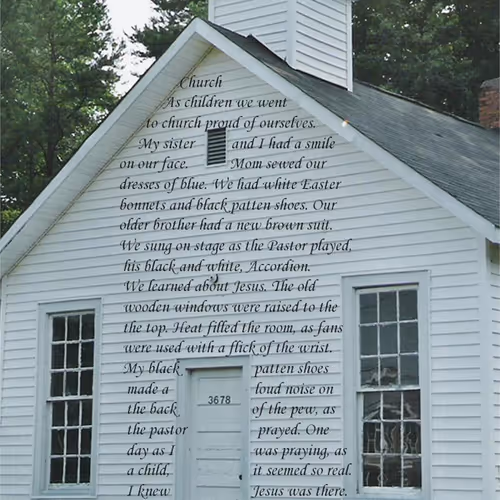 Church
As children we went
to church proud of ourselves.
My sister and I had a smile
on our face. Mom sewed our
dresses of blue. We had white Easter
bonnets and black patten shoes. Our
older brother had a new brown suit.
We sung on stage as the Pastor played,
his black and white, Accordion.
We learned about Jesus. The old
wooden windows were raised to the
the top. Heat filled the room, as fans
were used with a flick of the wrist.
My black patten shoes
made a loud noise on
the back of the pew, as
the pastor prayed. One
day as I was praying, as
a child, it seemed so real
I knew Jesus was there.
3678